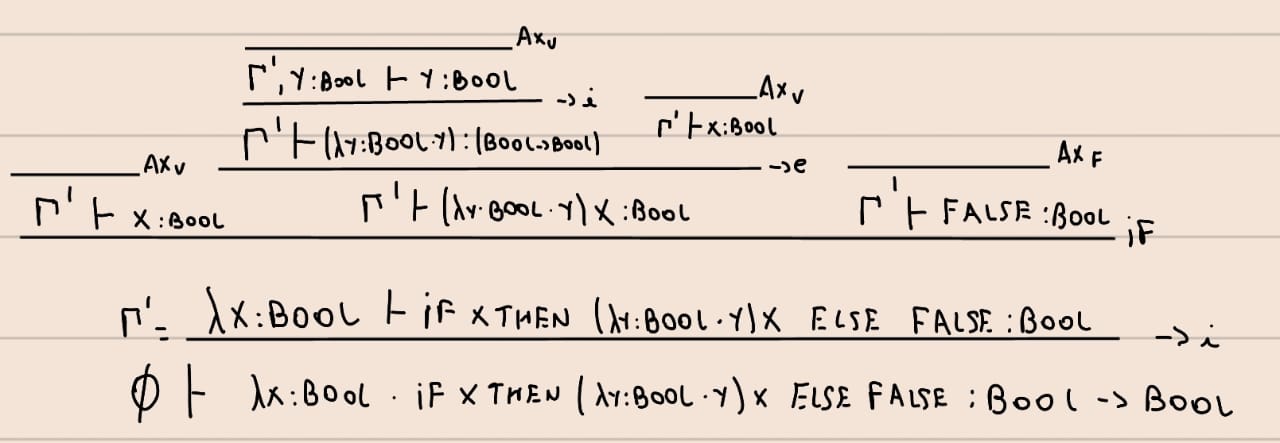 Axᵥ
Γ', Y:Bool ⊢ Y:BOOL ->i Axᵥ
Γ' ⊢ (λY:BOOL.Y) : (BOOL->BOOL) Γ' ⊢ X:BOOL ->e
AXᵥ AX F
Γ' ⊢ X:BOOL Γ' ⊢ (λY.BOOL.Y) X :BOOL Γ' ⊢ FALSE :BOOL iF
Γ'= λX:BOOL ⊢ iF X THEN (λY:BOOL.Y)X ELSE FALSE :BOOL ->i
∅ ⊢ λX:BOOL . iF X THEN (λY:BOOL.Y) X ELSE FALSE : BOOL -> BOOL